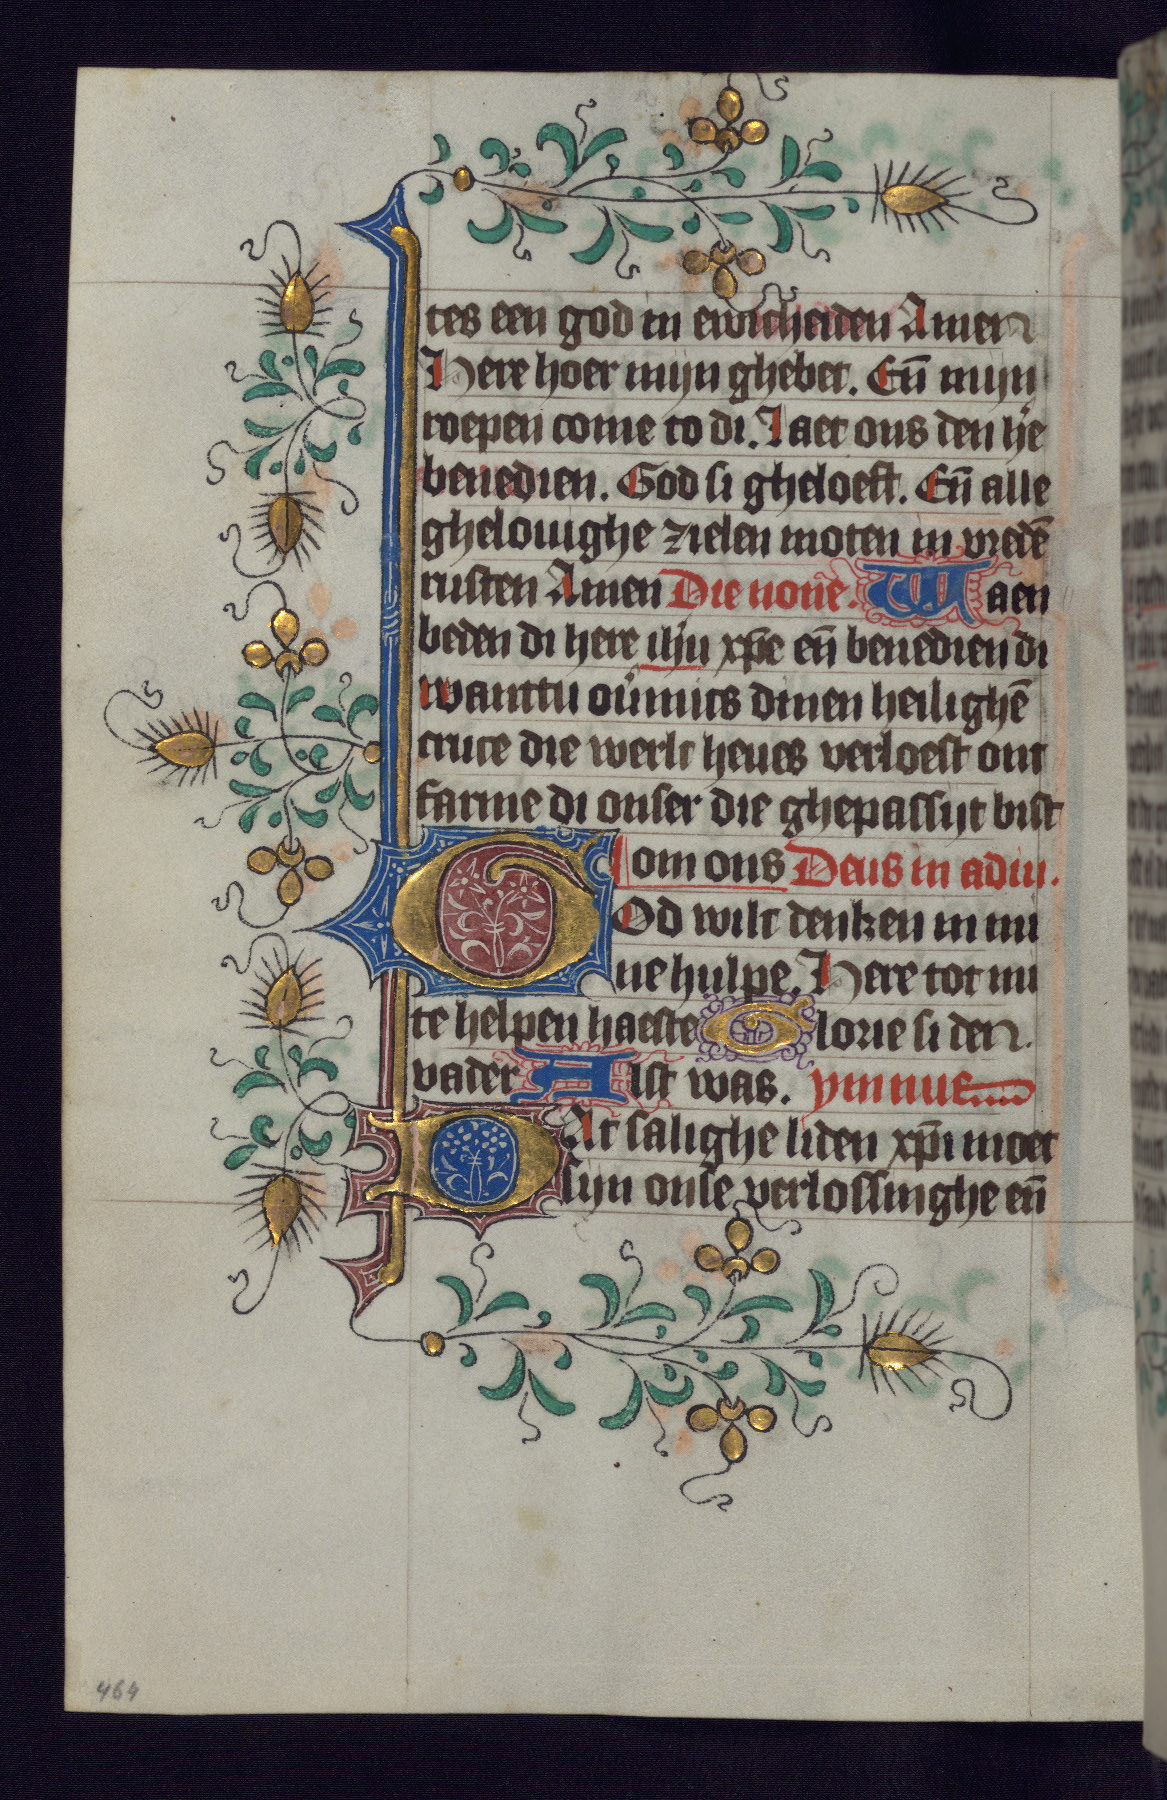 tes een god in ewicheiden Amen
Here hoer mijn ghebet. Eñ mijn
roepen come to di. Laet ons den hẽ
benedien. God si gheloeft. Eñ alle
ghelouighe zielen moten in vredẽ
rusten Amen Die none. Waen
beden di here ihũ xp̄e eñ benedien di
wanttu oũmits dinen heilighẽ
cruce die werlt heues verloest ont
farme di onser die ghepassijt bist
om ons Deus in adiu.
God wilt denken in mi
ne hulpe. Here tot mi
te helpen haeste Glorie si den
vader Alst was. ymnue
Dat salighe liden xp̄i moet
sijn onse verlossinghe eñ
464